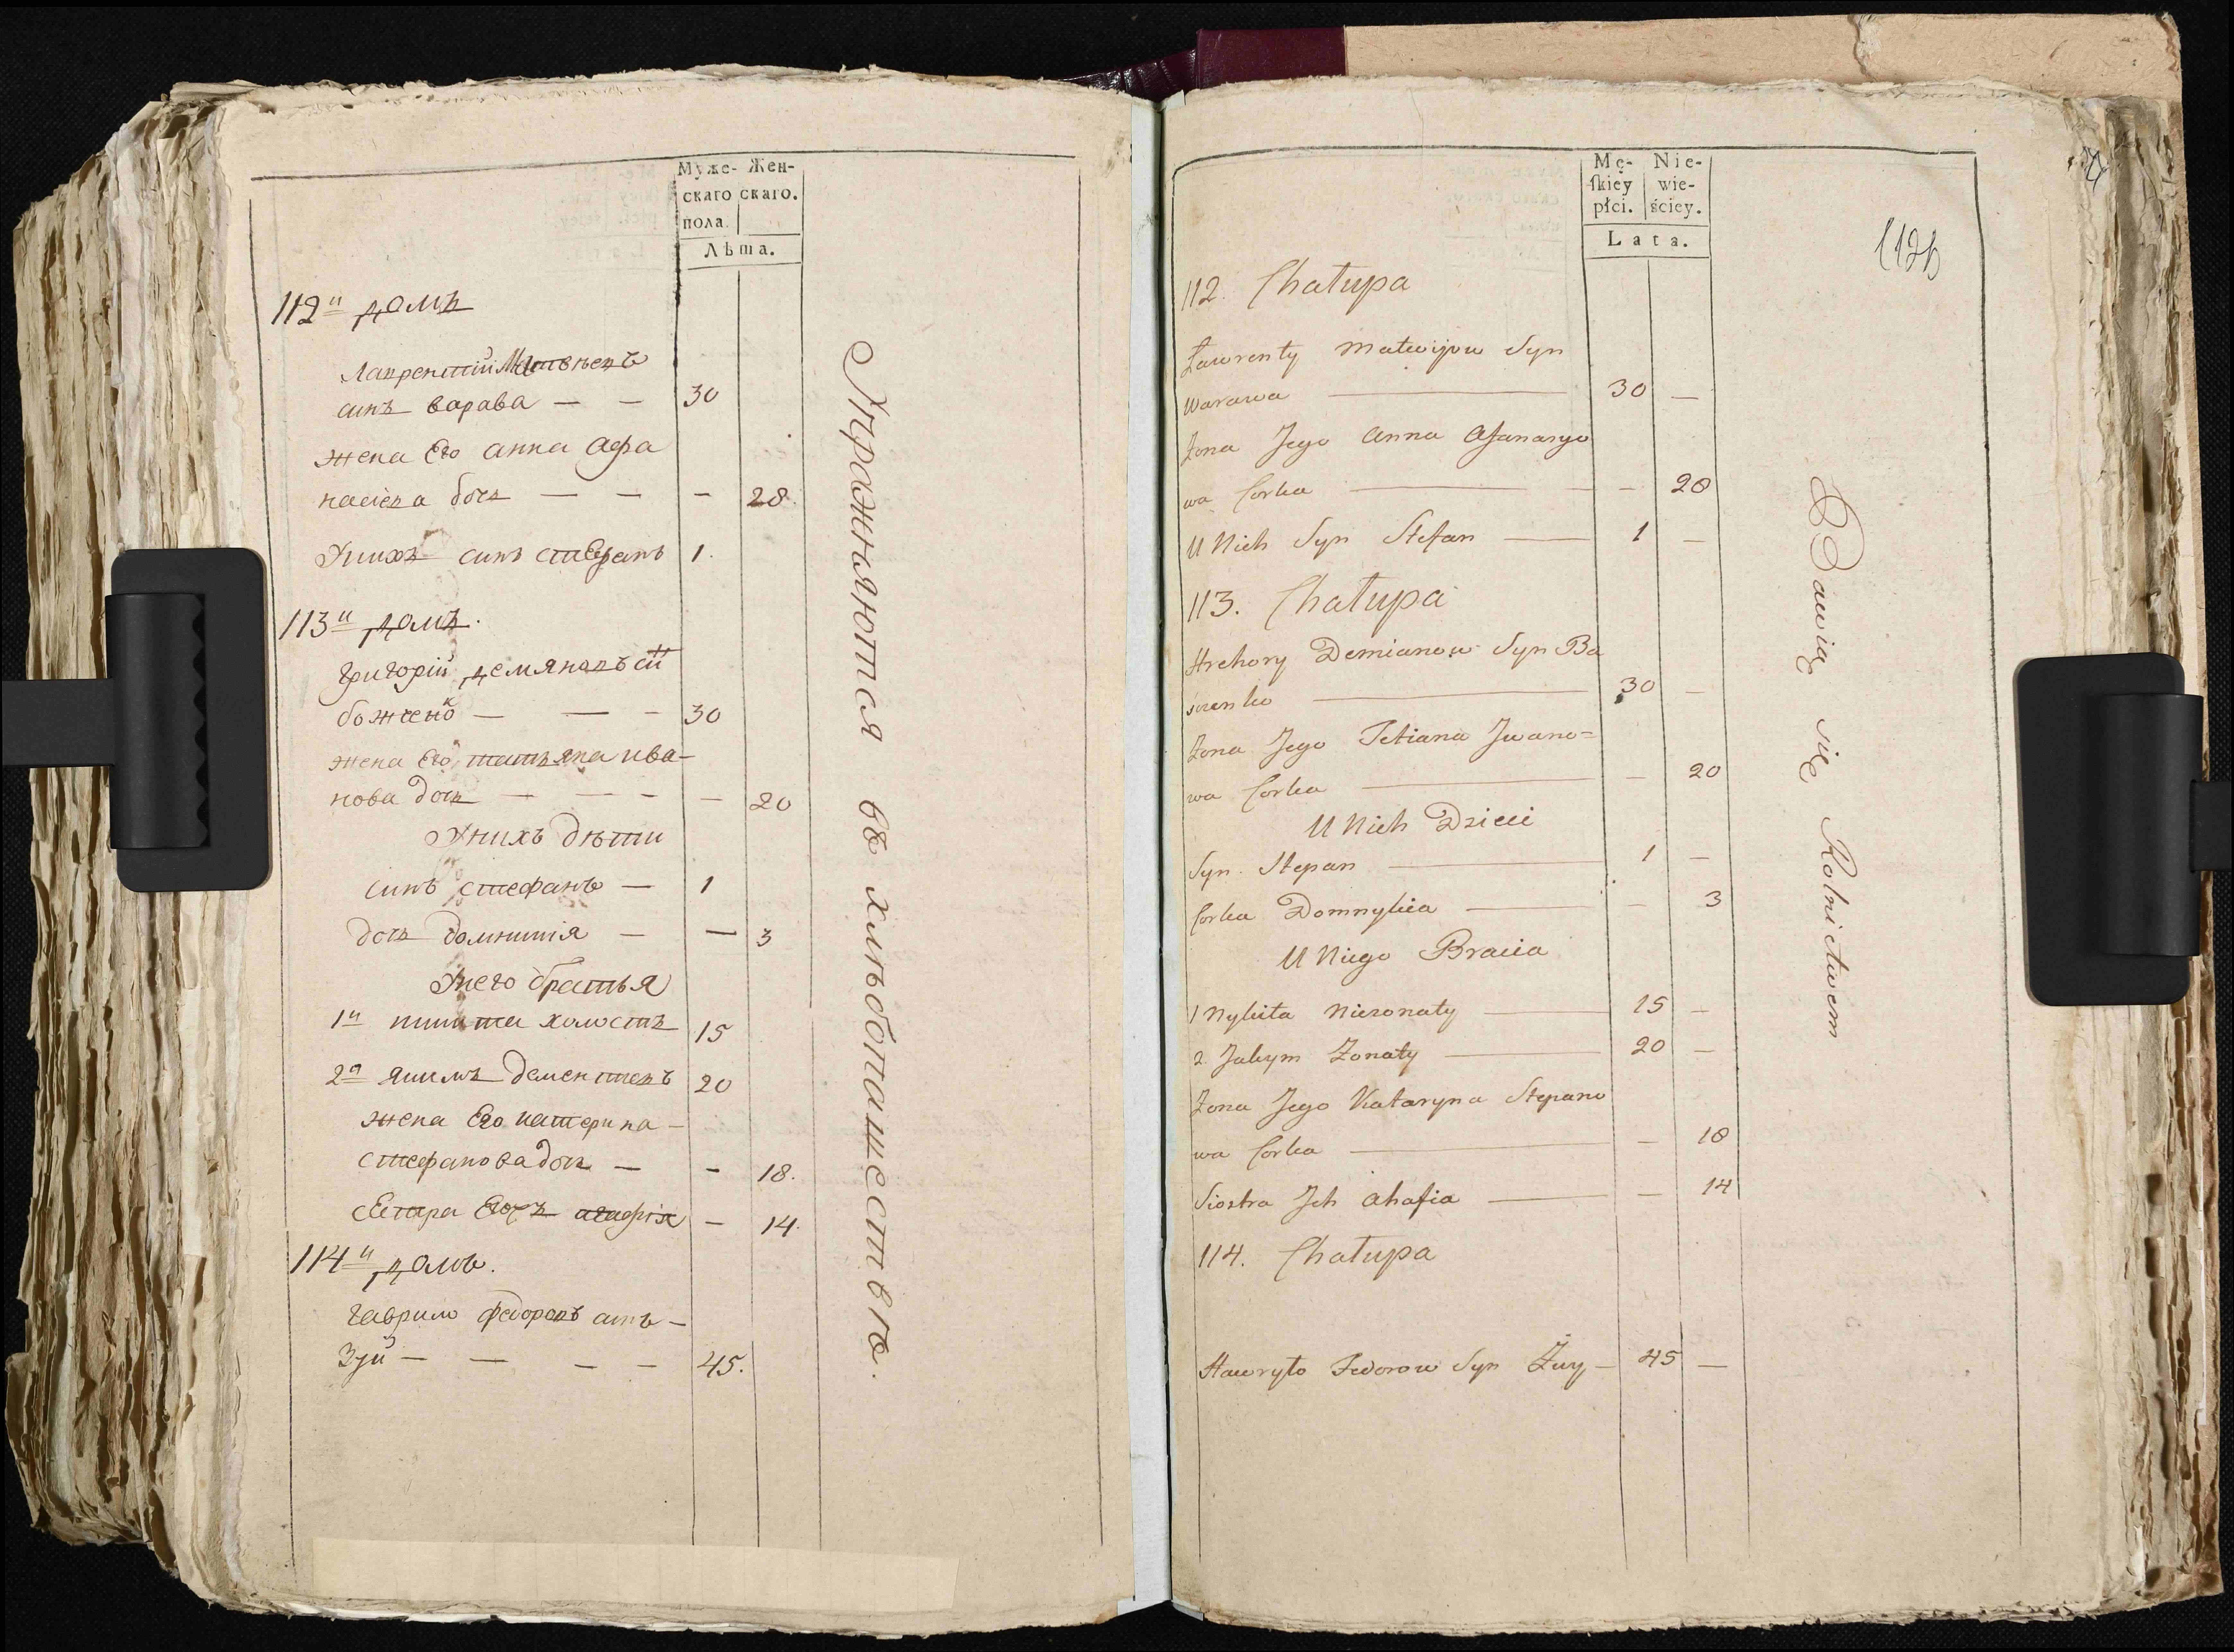 Муже- Жен-
скаго скаго.
пола.
Лѣта.
112й домъ
Лаврентий Матвѣевъ
синъ варава — — 30
жена Его анна афа
насієва дочъ — — — 28.
Унихъ синъ стефанъ 1.
113й домъ.
григорій демяновъ си
боженко — — — 30
жена Его татъяна ива-
нова дочъ — — — — 20
Унихъ дѣти
синъ стефанъ — 1
дочъ домникия — — 3
Унего братья
1й никита холостъ 15
2й якимъ дементиевъ 20
жена Его катерина —
стефанова дочъ — — 18.
сестра Еюхъ агафія — 14.
114й домъ.
гаврило федоровъ синъ —
Зуй — — — — 45.
Упражняются въ хлѣбопашествѣ.
Mę- Nie-
skiey wie-
płci. ściey.
Lata.
112b
112. Chałupa
Ławrenty Matwijow Syn
Warawa — 30 —
Żona Jego Anna Afanasyo
wa Corka — — 28
U Nich Syn Stefan — 1 —
113. Chałupa
Hrehory Demianow Syn Ba
żenko — 30 —
Żona Jego Tetiana Jwano=
wa Corka — — 20
U Nich Dzieci
Syn Stepan — 1 —
Corka Domnykia — — 3
U Niego Bracia
1 Nykita Nieżonaty — 15 —
2 Jakym Żonaty — 20 —
Żona Jego Kataryna Stepano
wa Corka — — 18
Siostra Jch Ahafia — — 14
114. Chałupa
Hawryło Fedorow Syn Zuy — 45 —
Bawią się Rolnictwem